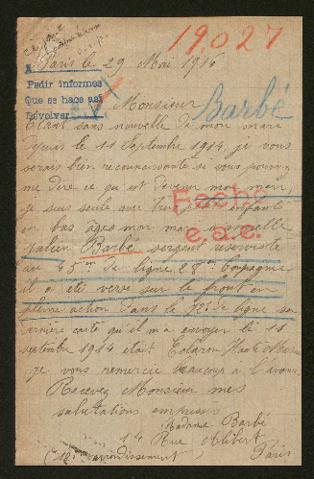 19.027
Paris le 29 Mai 1916
A
Pedir informes
Que se hace asi
Devolver
Barbé
Monsieur
Etant sans nouvelle de mon mari
depuis le 11 Septembre 1914, je vous
serais bien reconnaissante si vous pouvez
me dire ce qu est devenu mon mari
je suis seule avec trois enfants
en bas âges mon mari
Barbé sergent reserviste
au 45em de ligne 28em Compagnie
il a été versé sur le front en
pleine action dans le 72e de ligne sa
dernière carte qu'il m'a envoyer le 11
septembre 1914 etait Eclaron Haute Marne
je vous remercie beaucoup a l'avance
Recevez Monsieur mes
salutations empressées
Madame Barbé
14 Rue Alibert
(10e arrondissement) Paris
Fecha
e.a.e.